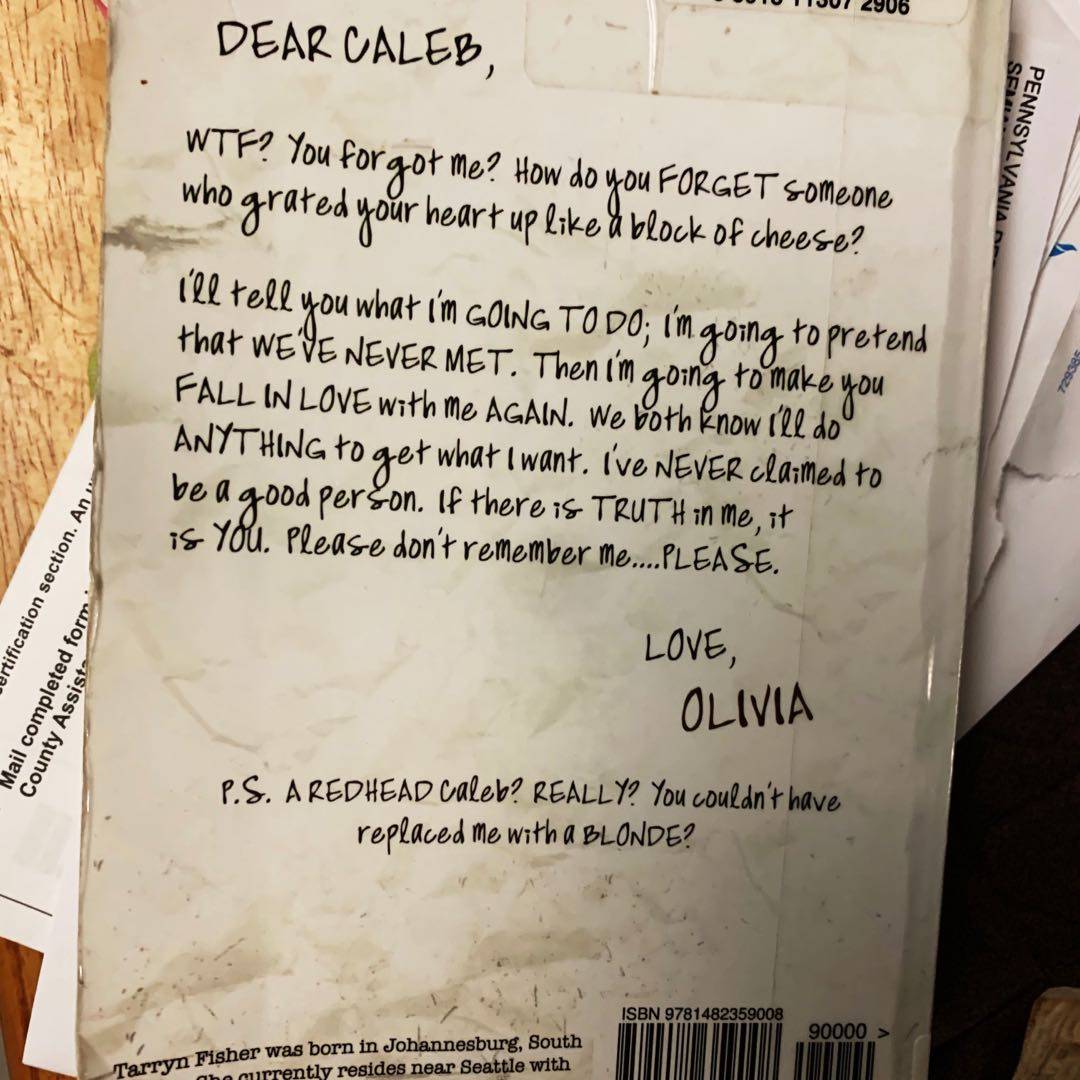 11307 2906
DEAR CALEB,
WTF? You forgot me? How do you FORGET someone
who grated your heart up like a block of cheese?
i'll tell you what i'm GOING TO DO; i'm going to pretend
that WE'VE NEVER MET. Then i'm going to make you
FALL IN LOVE with me AGAIN. We both know i'll do
ANYTHING to get what I want. i've NEVER claimed to
be a good person. If there is TRUTH in me, it
is YOU. Please don't remember me....PLEASE.
LOVE,
OLIVIA
P.S. A REDHEAD Caleb? REALLY? You couldn't have
replaced me with a BLONDE?
ISBN 9781482359008
90000 >
Tarryn Fisher was born in Johannesburg, South
She currently resides near Seattle with
PENNSYLVANIA
729385
ertification section. An
Mail completed form
County Assist